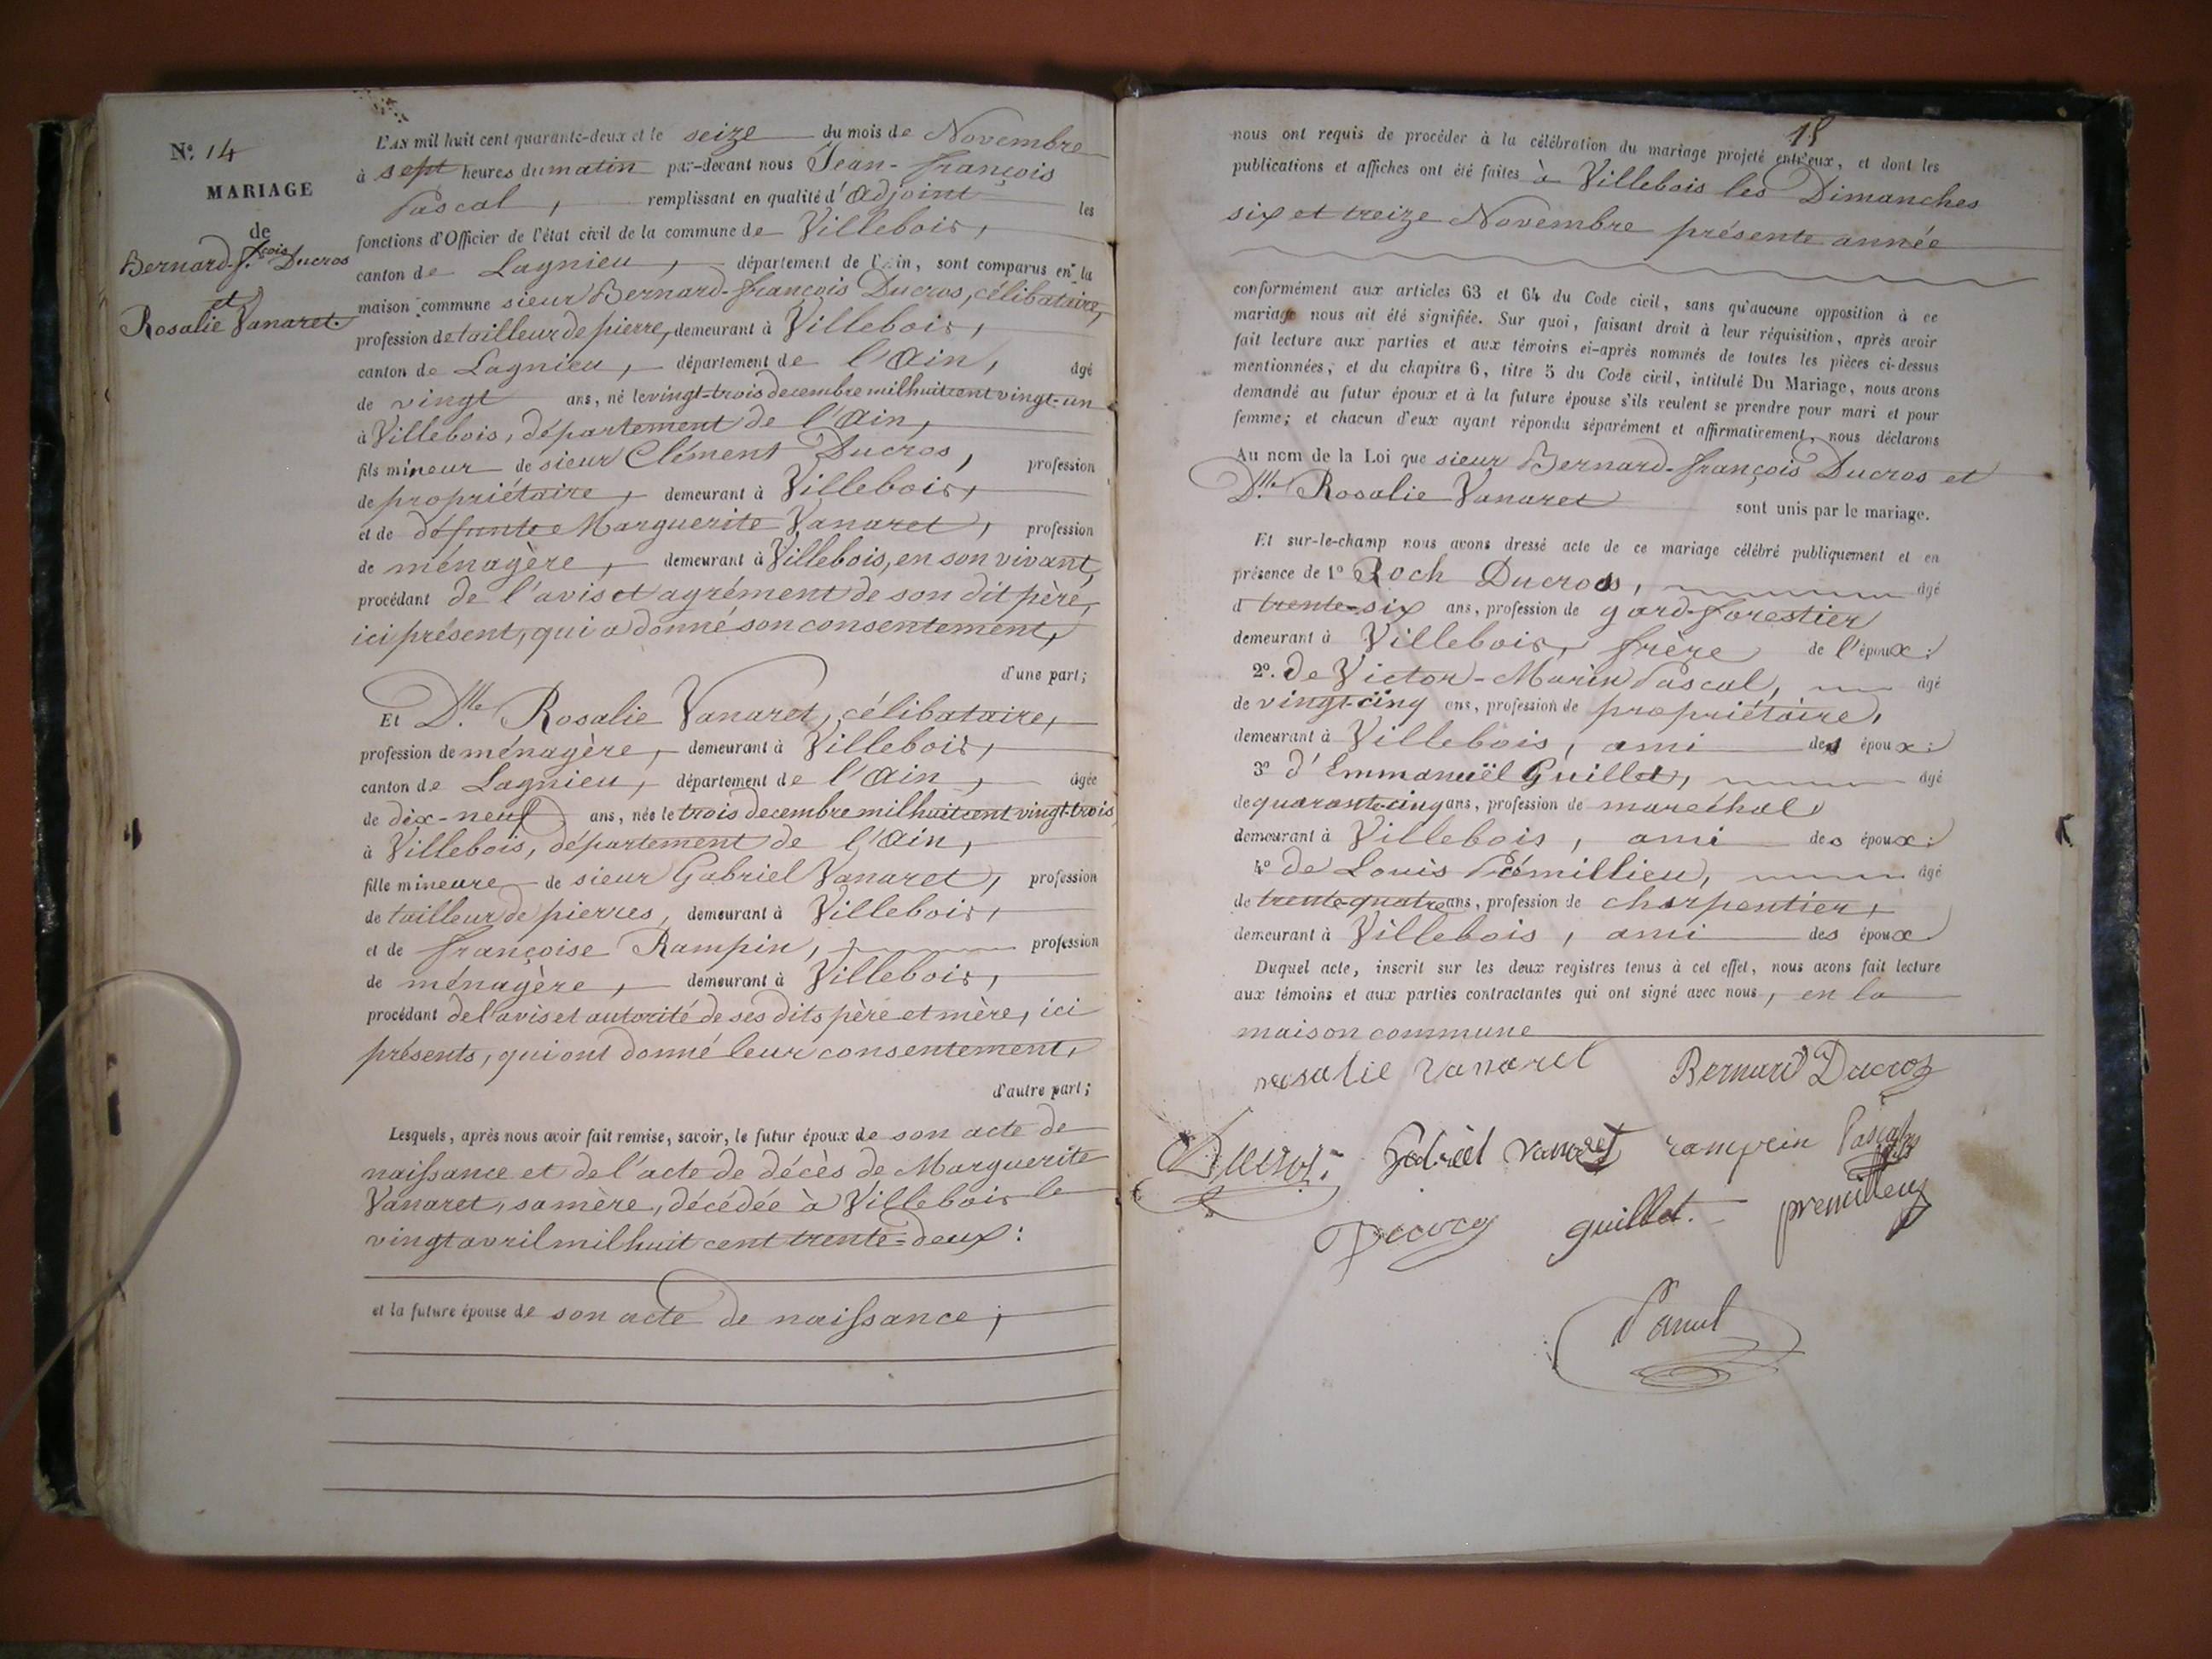 N.o 14
MARIAGE
de
Bernard-f.çois Ducros
et
Rosalie Vanaret.
L'AN mil huit cent quarante-deux et le seize du mois de Novembre
à sept heures du matin par-devant nous Jean-françois
Pascal, remplissant en qualité d'Adjoint les
fonctions d'Officier de l'état civil de la commune de Villebois,
canton de Lagnieu, département de l'Ain, sont comparus en la
maison commune sieur Bernard-françois Ducros, célibataire,
profession de tailleur de pierre, demeurant à Villebois,
canton de Lagnieu, département de l'Ain, âgé
de vingt ans, né le vingt-trois decembre mil huit cent vingt-un
à Villebois, département de l'Ain,
fils mineur de sieur Clément Ducros, profession
de propriétaire, demeurant à Villebois,
et de défunte Marguerite Vanaret, profession
de ménagère, demeurant à Villebois, en son vivant,
procédant de l'avis et agrément de son dit père,
ici présent, qui a donné son consentement,
d'une part;
Et D.lle Rosalie Vanaret, célibataire,
profession de ménagère, demeurant à Villebois,
canton de Lagnieu, département de l'Ain, âgée
de dix-neuf ans, née le trois decembre mil huit cent vingt-trois
à Villebois, département de l'Ain,
fille mineure de sieur Gabriel Vanaret, profession
de tailleur de pierres, demeurant à Villebois,
et de françoise Rampin, profession
de ménagère, demeurant à Villebois,
procédant de l'avis et autorité de ses dits père et mère, ici
présents, qui ont donné leur consentement,
d'autre part;
Lesquels, après nous avoir fait remise, savoir, le futur époux de son acte de
naissance et de l'acte de décès de Marguerite
Vanaret, sa mère, décédée à Villebois le
vingt avril mil huit cent trente-deux:
et la future épouse de son acte de naissance;
15
nous ont requis de procéder à la célébration du mariage projeté entr'eux, et dont les
publications et affiches ont été faites à Villebois les Dimanches
six et treize Novembre présente année
conformément aux articles 63 et 64 du Code civil, sans qu'aucune opposition à ce
mariage nous ait été signifiée. Sur quoi, faisant droit à leur réquisition, après avoir
fait lecture aux parties et aux témoins ci-après nommés de toutes les pièces ci-dessus
mentionnées, et du chapitre 6, titre 5 du Code civil, intitulé Du Mariage, nous avons
demandé au futur époux et à la future épouse s'ils veulent se prendre pour mari et pour
femme; et chacun d'eux ayant répondu séparément et affirmativement, nous déclarons
Au nom de la Loi que sieur Bernard-françois Ducros et
D.lle Rosalie Vanaret sont unis par le mariage.
Et sur-le-champ nous avons dressé acte de ce mariage célébré publiquement et en
présence de 1o Roch Ducros, âgé
d trente-six ans, profession de gard-forestier
demeurant à Villebois, frère de l'époux:
2o. de Victor-Marin Pascal, âgé
de vingt-cinq ans, profession de propriétaire,
demeurant à Villebois, ami des époux:
3o d'Emmanuël Guillet, âgé
de quarante-cinq ans, profession de maréchal
demeurant à Villebois, ami des époux:
4o de Louis Prémillieu, âgé
de trente-quatre ans, profession de charpentier,
demeurant à Villebois, ami des époux
Duquel acte, inscrit sur les deux registres tenus à cet effet, nous avons fait lecture
aux témoins et aux parties contractantes qui ont signé avec nous, en la
maison commune
rosalie vanaret Bernard Ducros
Ducros Gabriel vanaret rampin Pascal
guillet. premillieu